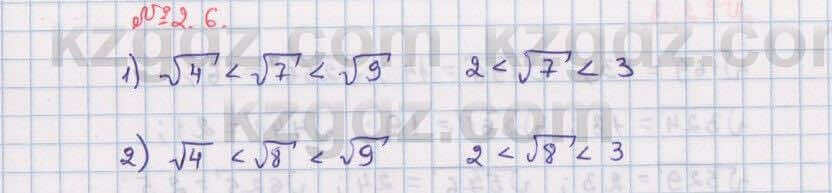 №2.6.
kzgdz.com kzgdz.com kzgdz.com
1) √4 < √7 < √9 2 < √7 < 3
kzgdz.com
2) √4 < √8 < √9 2 < √8 < 3